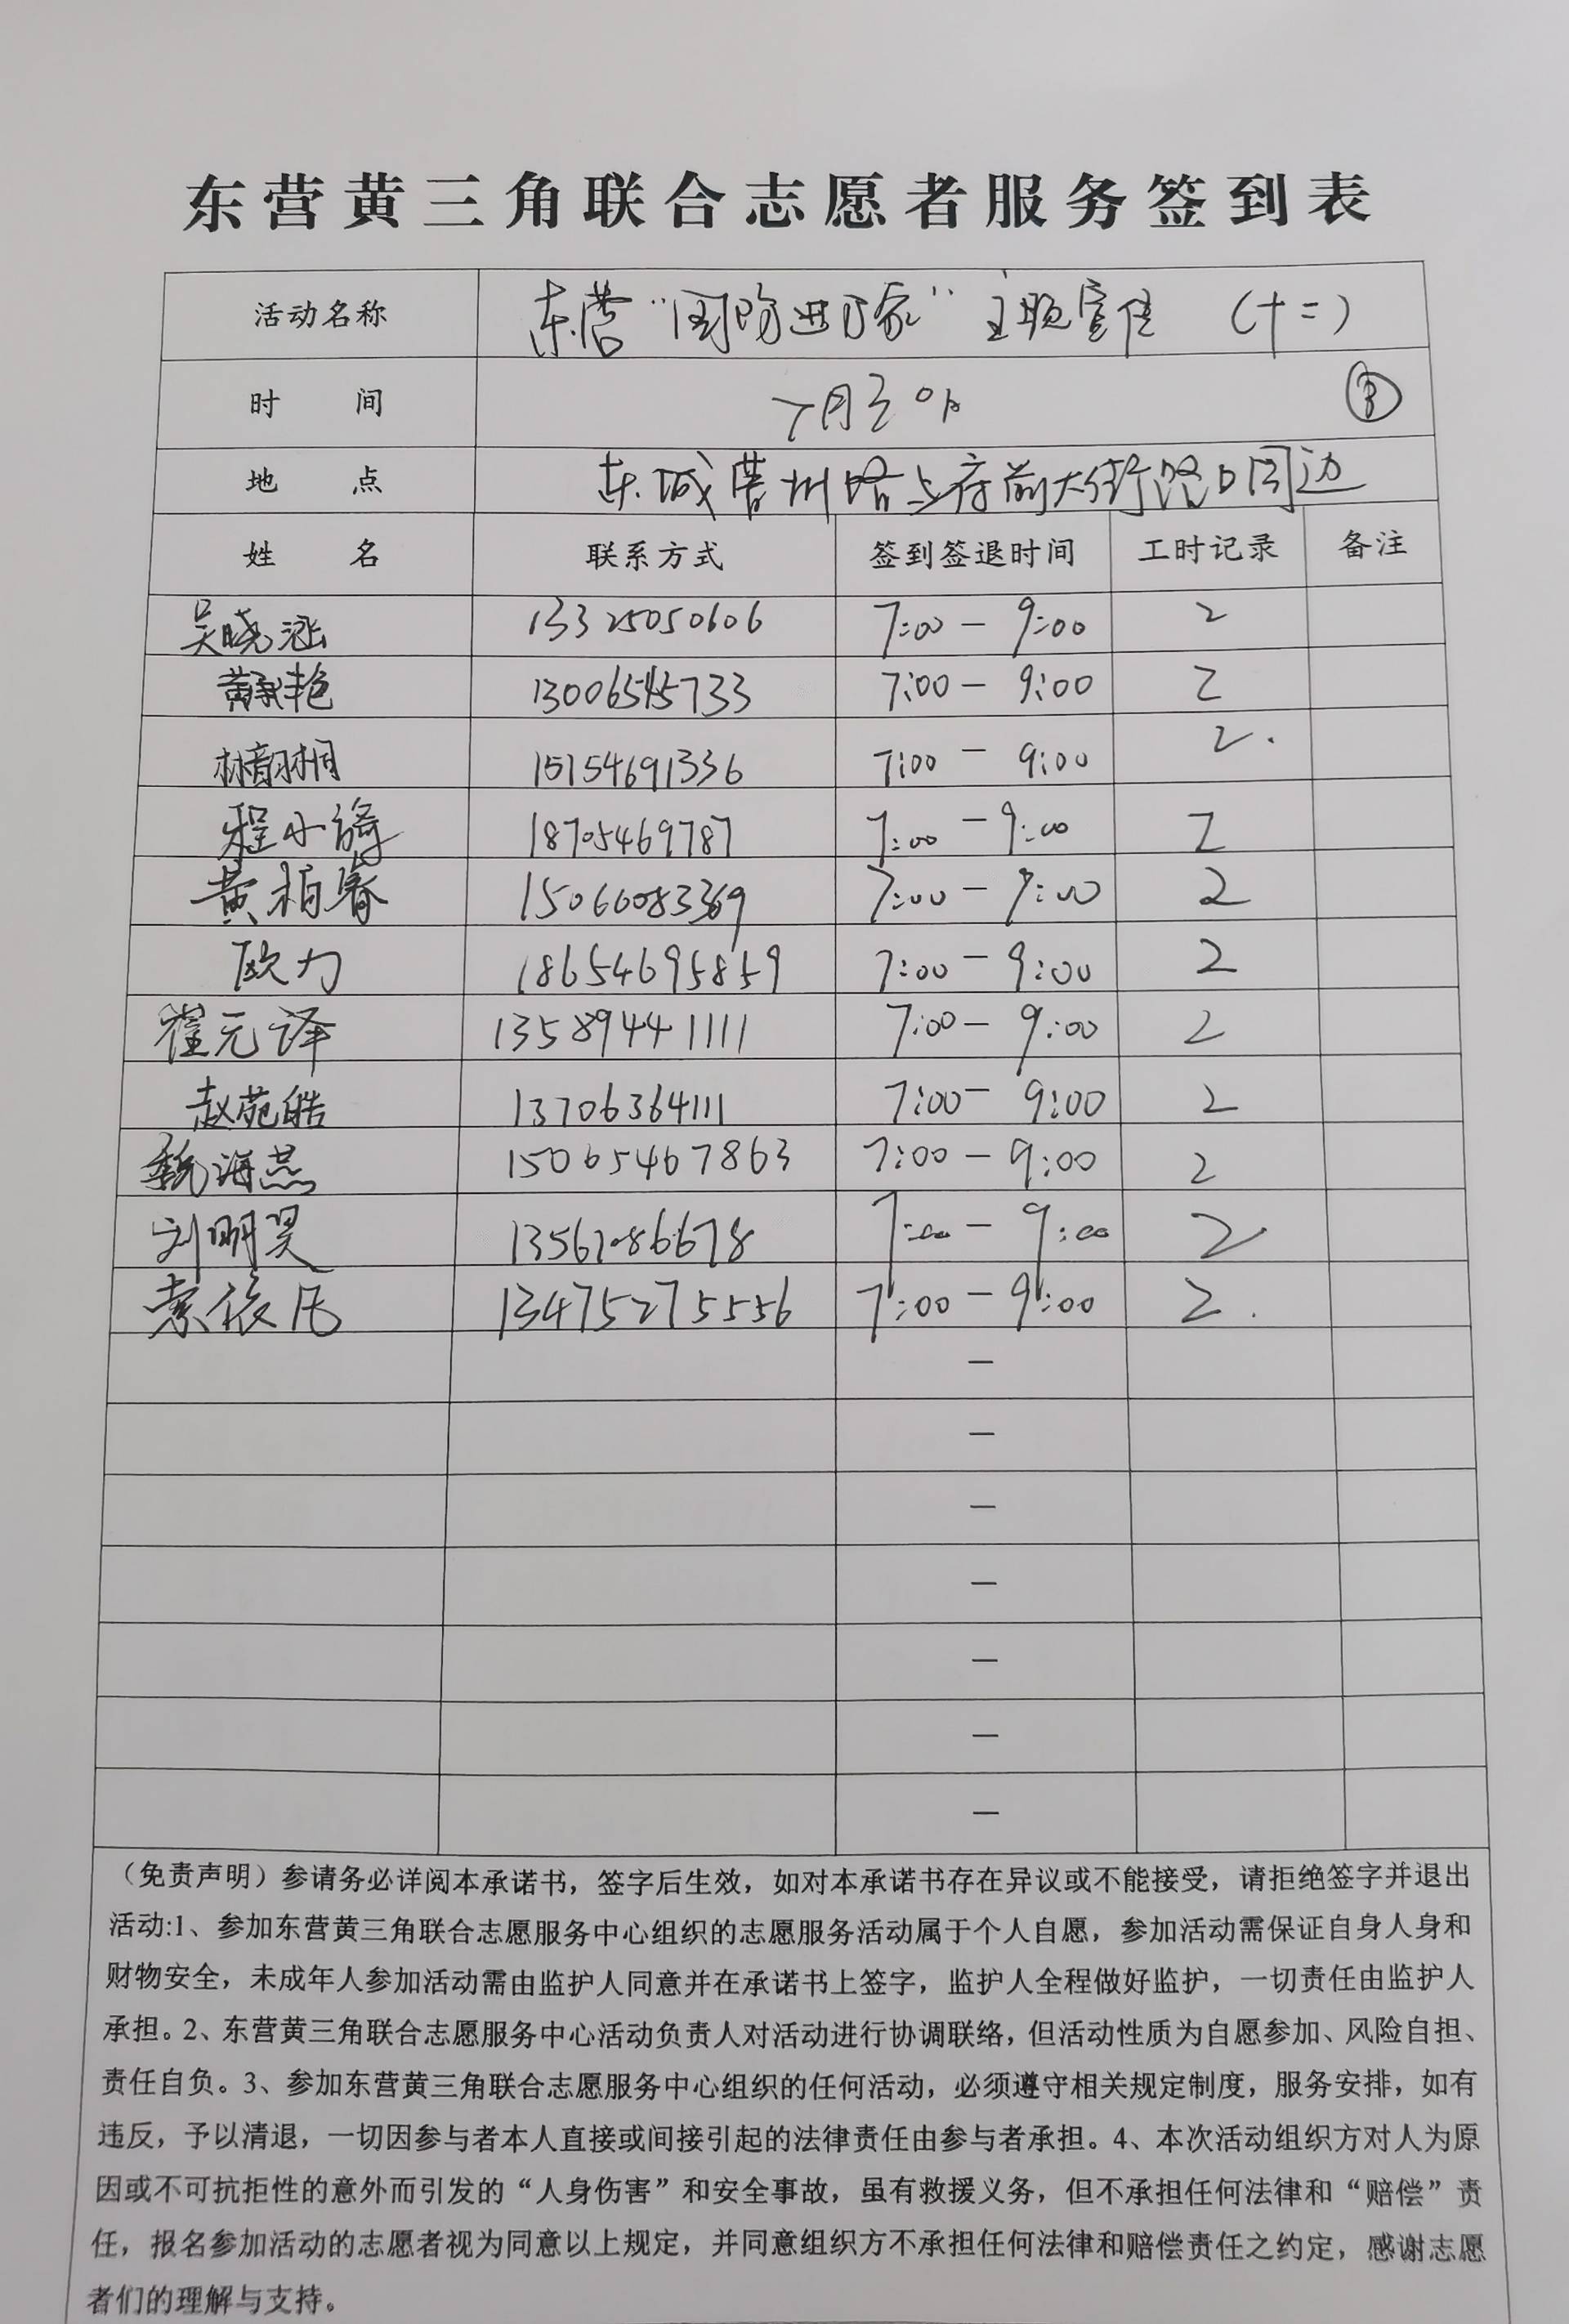 东营黄三角联合志愿者服务签到表
活动名称 东营“国防进万家”主题宣传 (十二)
时 间 7月30日 ③
地 点 东城营州路与府前大街路口周边
姓 名 联系方式 签到签退时间 工时记录 备注
吴晓涵 13325050606 7:00 - 9:00 2
艳 13006545733 7:00 - 9:00 2
林韵桐 15154691336 7:00 - 9:00 2.
程小 18705469787 7:00 - 9:00 2
黄柏睿 15066083369 7:00 - 9:00 2
欧力 18654695859 7:00 - 9:00 2
翟元译 13589441111 7:00 - 9:00 2
赵苑皓 13706364111 7:00 - 9:00 2
魏海燕 15065467863 7:00 - 9:00 2
刘明昊 13562086678 7:00 - 9:00 2
索依凡 13475275556 7:00 - 9:00 2.
—
—
—
—
—
—
—
（免责声明）参请务必详阅本承诺书，签字后生效，如对本承诺书存在异议或不能接受，请拒绝签字并退出
活动:1、参加东营黄三角联合志愿服务中心组织的志愿服务活动属于个人自愿，参加活动需保证自身人身和
财物安全，未成年人参加活动需由监护人同意并在承诺书上签字，监护人全程做好监护，一切责任由监护人
承担。2、东营黄三角联合志愿服务中心活动负责人对活动进行协调联络，但活动性质为自愿参加、风险自担、
责任自负。3、参加东营黄三角联合志愿服务中心组织的任何活动，必须遵守相关规定制度，服务安排，如有
违反，予以清退，一切因参与者本人直接或间接引起的法律责任由参与者承担。4、本次活动组织方对人为原
因或不可抗拒性的意外而引发的“人身伤害”和安全事故，虽有救援义务，但不承担任何法律和“赔偿”责
任，报名参加活动的志愿者视为同意以上规定，并同意组织方不承担任何法律和赔偿责任之约定，感谢志愿
者们的理解与支持。